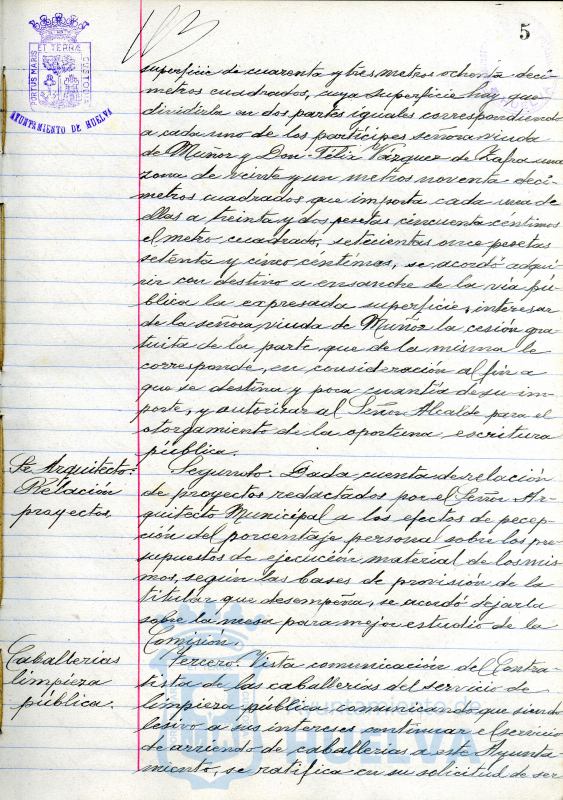 5
PORTUS MARIS ET TERRÆ CUSTODIA
AYUNTAMIENTO DE HUELVA
superficie de cuarenta y tres metros ochenta decí-
metros cuadrados, cuya superficie hay que
dividirla en dos partes iguales correspondiendo
a cada uno de los partícipes señora viuda
de Muñoz y Don Félix Vázquez de Zafra una
zona de veinte y un metros noventa decí-
metros cuadrados que importa cada una de
ellas a treinta y dos pesetas cincuenta céntimos
el metro cuadrado, setecientas once pesetas
setenta y cinco céntimos, se acordó adqui-
rir con destino a ensanche de la vía pú-
blica la expresada superficie, interesar
de la señora viuda de Muñoz la cesión gra-
tuita de la parte que de la misma le
corresponde, en consideración al fin a
que se destina y poca cuantía de su im-
porte, y autorizar al Señor Alcalde para el
otorgamiento de la oportuna escritura
pública.
Sr. Arquitecto=
Relación
proyectos.
Segundo. Dada cuenta de relación
de proyectos redactados por el Señor Ar-
quitecto Municipal a los efectos de pecep-
ción del porcentaje personal sobre los pre-
supuestos de ejecución material de los mis-
mos, según las bases de provisión de la
titular que desempeña, se acordó dejarla
sobre la mesa para mejor estudio de la
Comisión.
Caballerías
limpieza
pública.
Tercero. Vista comunicación del Contra-
tista de las caballerías del servicio de
limpieza pública comunicando que siendo
lesivo a sus intereses continuar el servicio
de arriendo de caballerías a este Ayunta-
miento, se ratifica en su solicitud de ser
Ayuntamiento de
HUELVA